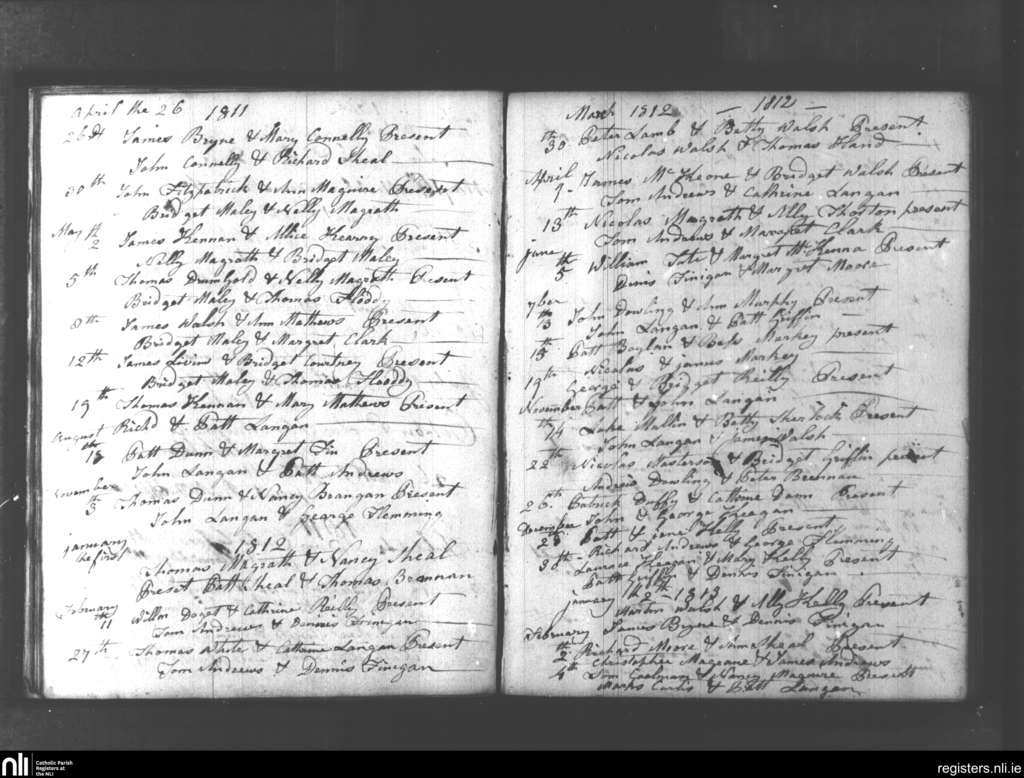 April the 26 1811
26th James Bryne & Mary Connelly Present
John Connelly & Richard Sheal
30th John Fitzpatrick & Ann Maguire Present
Bridget Maley & Nelly Magrath
May th
2 James Kennan & Allice Kearny Present
Nelly Magrath & Bridget Maley
5th Thomas Drumgold & Nelly Magrath Present
Bridget Maley & Thomas Floddy
8th James Walsh & Ann Mathews Present
Bridget Maley & Margret Clark
12th James Livins & Bridget Courtney Present
Bridget Maley & Thomas Floddy
19th Thomas Kennan & Mary Mathews Present
Richd & Patt Langan
August
th
18 Patt Dunn & Margret Present
John Langan & Patt Andrews
November
th
3 Thomas Dunn & Nancy Brangan Present
John Langan & George Flemming
january
the first 1812
Thomas Magrath & Nancy Sheal
Preset Patt Sheal & Thomas Brennan
February
th
11 Willm & Cathrine Reilly Present
Tom Andrews & Dennis Finegan
27th Thomas White & Catherine Langan Present
Tom Andrews & Dennis Finigan
March 1812 — 1812 —
th
30 Peter Lamb & Betty Walsh Present
Nicolas Walsh & Thomas Hand
April
7 James McKeone & Bridget Walsh Present
Tom Andrews & Cathrine Langan
13th Nicolas Magrath & Ally present
Tom Andrews & Margret Clark
june
th
5 William Tate & Margret McKenna Present
Denis Finigan & Margret Moore
7ber
th
13 John Dowling & Ann Murphy Present
John Langan & Patt Griffin
15th Patt Boylan & Bess Markey present
Nicolas & james Markey
19th George & Bridget Reilly Present
November Patt & John Langan
th
14 Luke Mallin & Betty Sherlock Present
John Langan & James Walsh
22th Nicolas Masterson & Bridget Griffin present
Andrew Dowling & Peter Brennan
26th Patrick Duffy & Catherine Dunn Present
December John & George Keagan
28 Patt & jene Kelly Present
Richard Andrews & George Flemming
30th Laurace Keagan & Mary Kelly Present
Patt Griffin & Dennis Finigan
january 1813
Martin Walsh & Ally Kelly Present
February James Bryne & Dennis Finigan
th
2 Richard Moore & Anna Sheal Present
Christopher Mageane & James Andrews
4th Tom Coleman & Nancy Magwire Present
Marks Curtis & Patt Langan
nli
Catholic Parish
Registers at
the NLI
registers.nli.ie